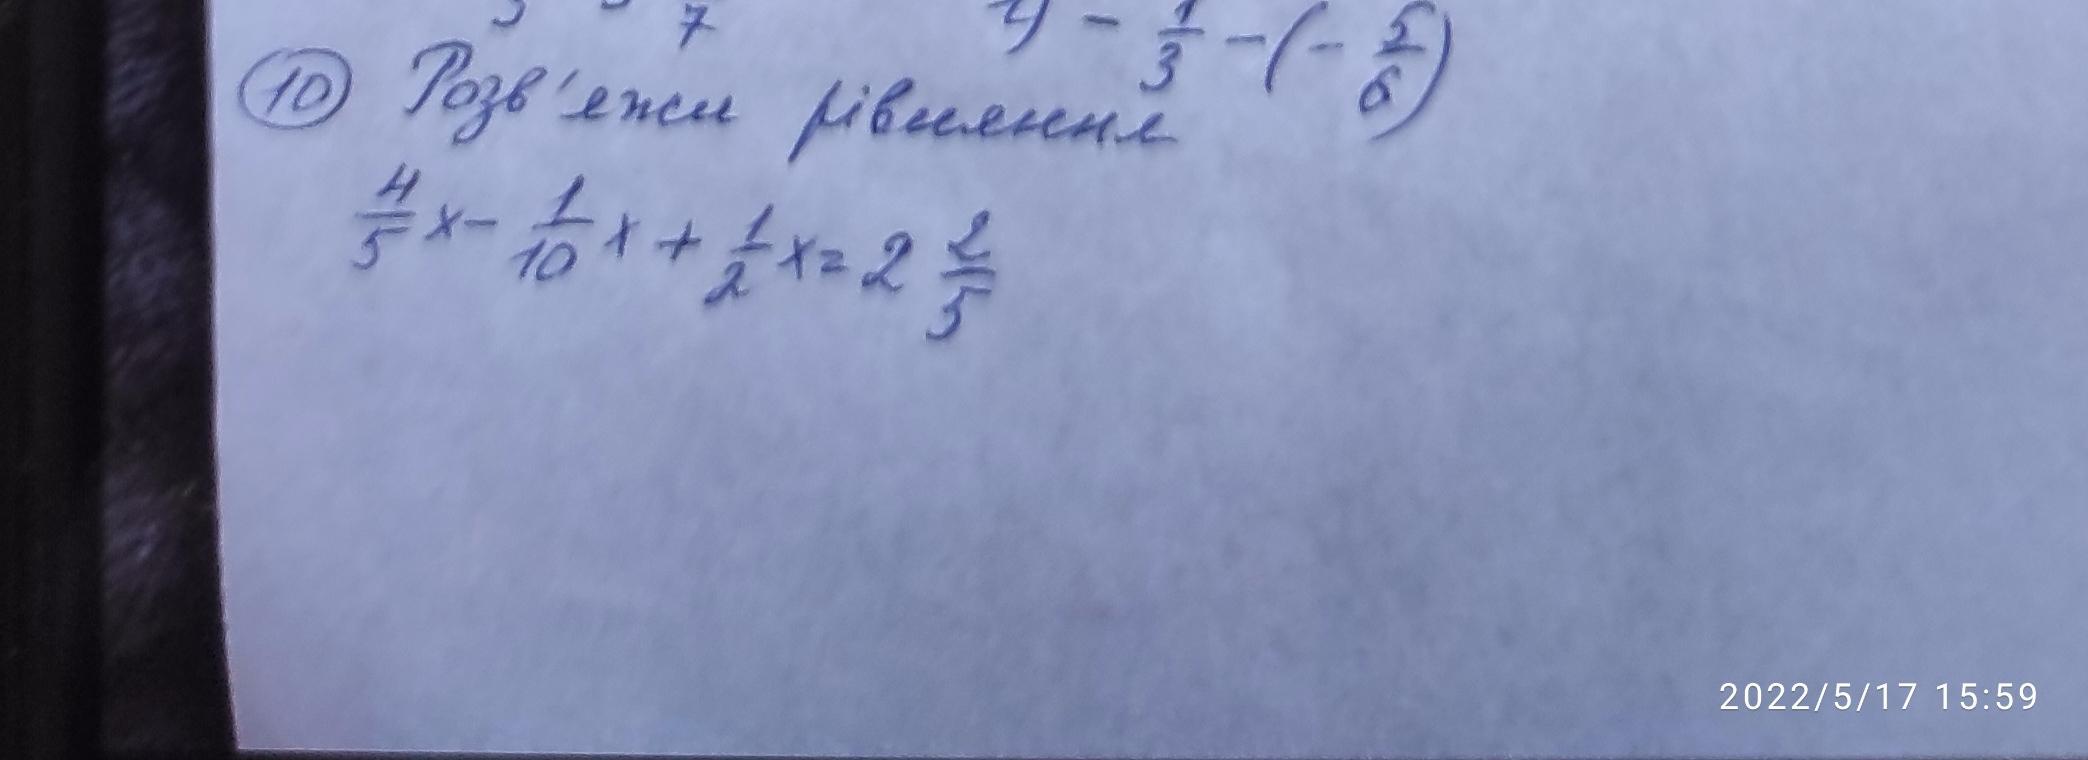 7 - 1/3 - (- 5/6)
10 Розв'яжи рівняння
4/5 x - 1/10 x + 1/2 x = 2 2/5
2022/5/17 15:59